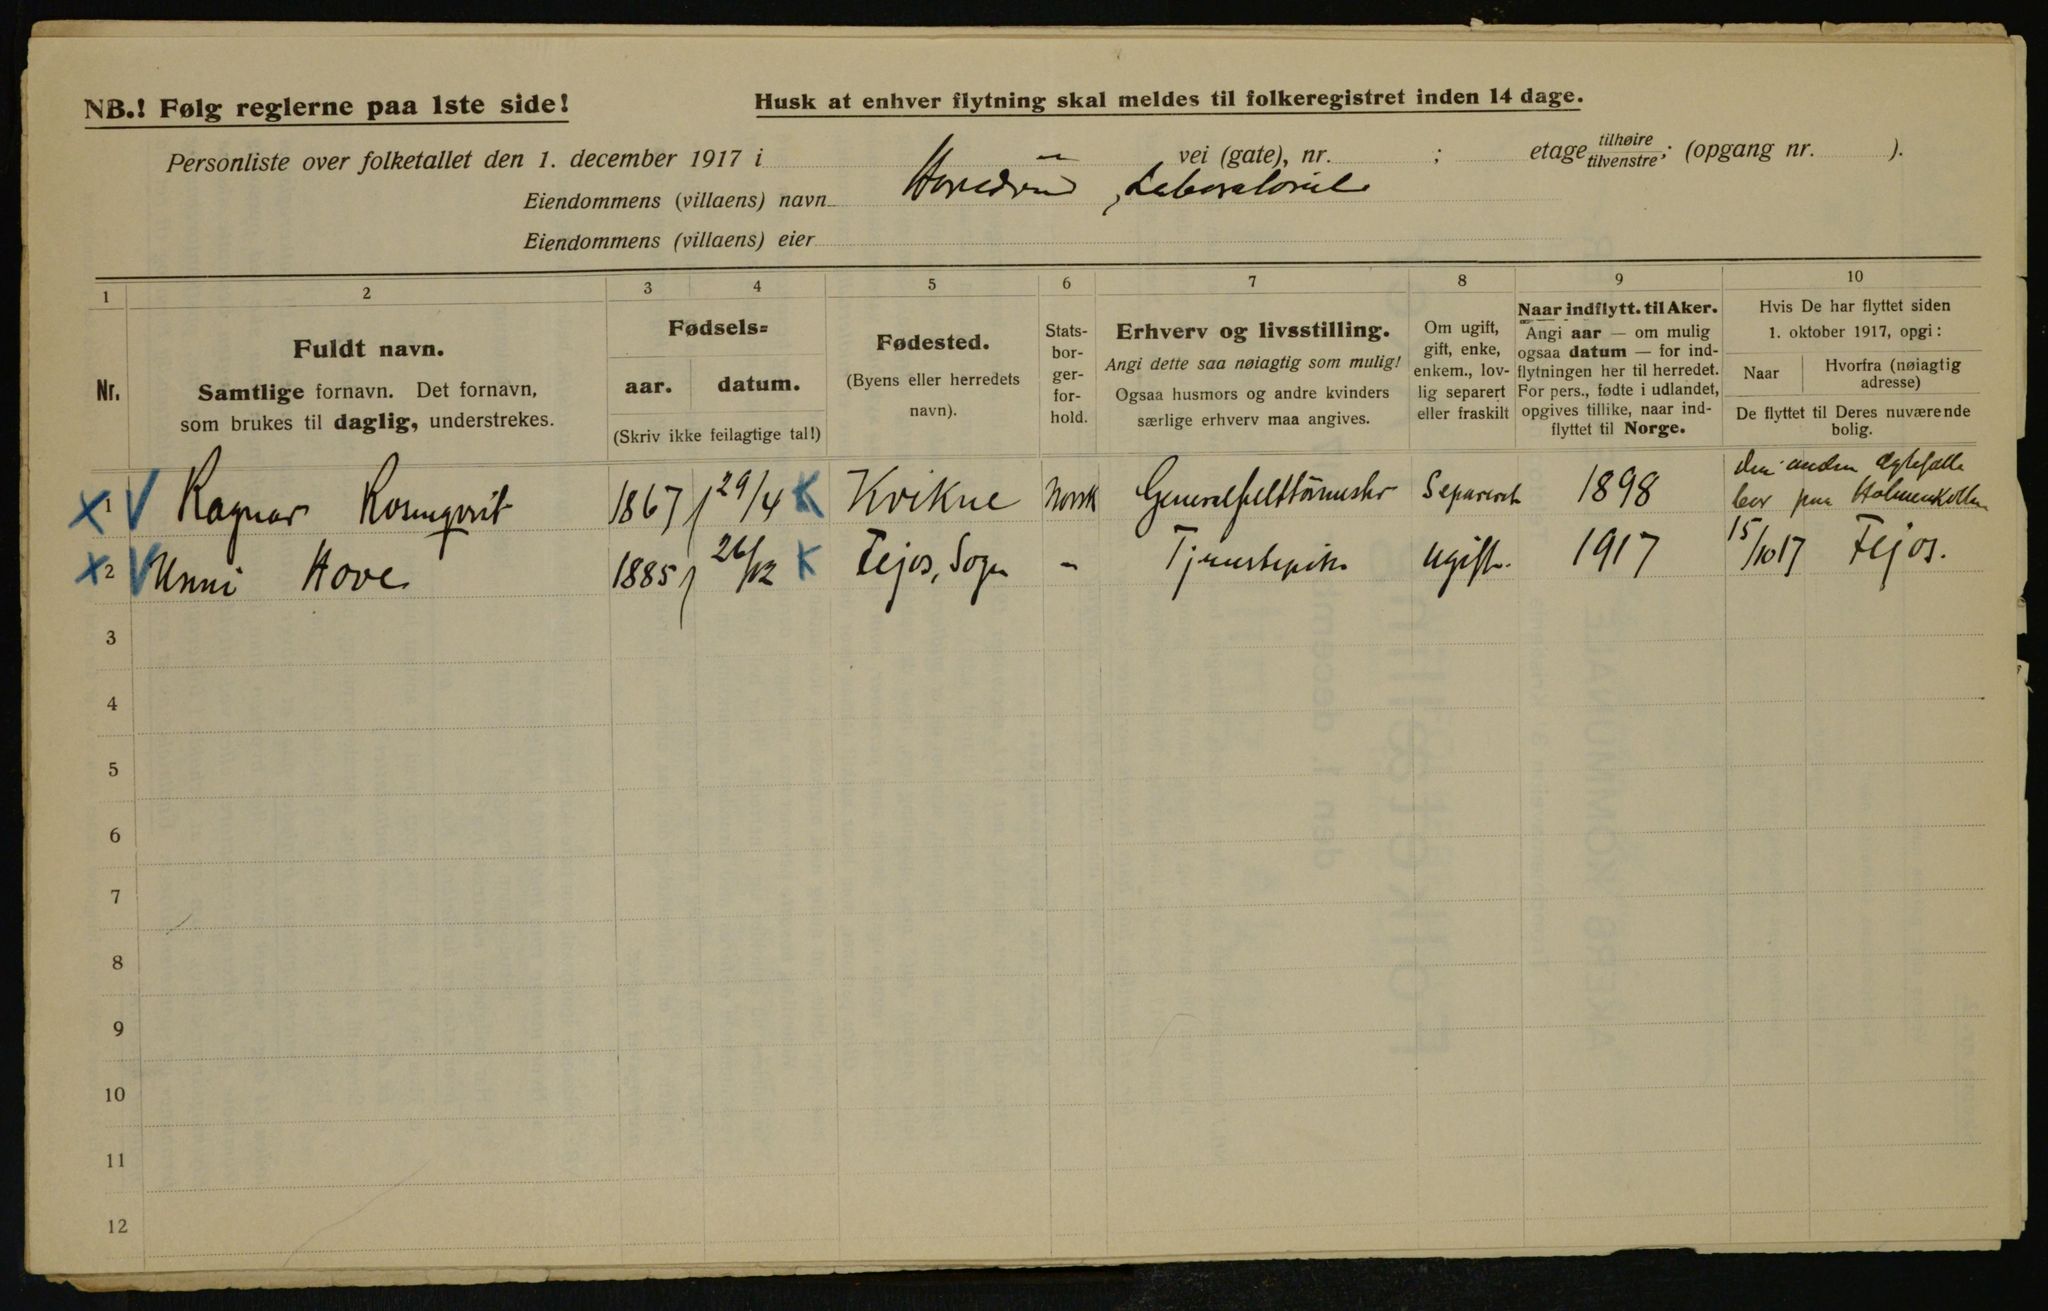 NB.! Følg reglerne paa 1ste side!
Husk at enhver flytning skal meldes til folkeregistret inden 14 dage.
Personliste over folketallet den 1. december 1917 i vei (gate), nr. ; etage tilhøire tilvenstre; (opgang nr. ).
Eiendommens (villaens) navn Hovedøen, Laboratoriet
Eiendommens (villaens) eier
1 2 3 4 5 6 7 8 9 10
Nr.
Fuldt navn.
Samtlige fornavn. Det fornavn,
som brukes til daglig, understrekes.
Fødsels=
aar. datum.
(Skriv ikke feilagtige tal!)
Fødested.
(Byens eller herredets
navn).
Stats-
bor-
ger-
for-
hold.
Erhverv og livsstilling.
Angi dette saa nøiagtig som mulig!
Ogsaa husmors og andre kvinders
særlige erhverv maa angives.
Om ugift,
gift, enke,
enkem., lov-
lig separert
eller fraskilt
Naar indflytt. til Aker.
Angi aar — om mulig
ogsaa datum — for ind-
flytningen her til herredet.
For pers., fødte i udlandet,
opgives tillike, naar ind-
flyttet til Norge.
Hvis De har flyttet siden
1. oktober 1917, opgi:
Naar
Hvorfra (nøiagtig
adresse)
De flyttet til Deres nuværende
bolig.
X 1 V Ragnar Rosenqvist 1867 29/4 K Kvikne Norsk Generalfelttøimester Separert 1898 den anden ægtefælle
bor paa Holmenkollen
X 2 V Unni Hove 1885 26/12 K Fejos, Sogn - Tjenestepike Ugift. 1917 15/10 17 Fejos.
3
4
5
6
7
8
9
10
11
12